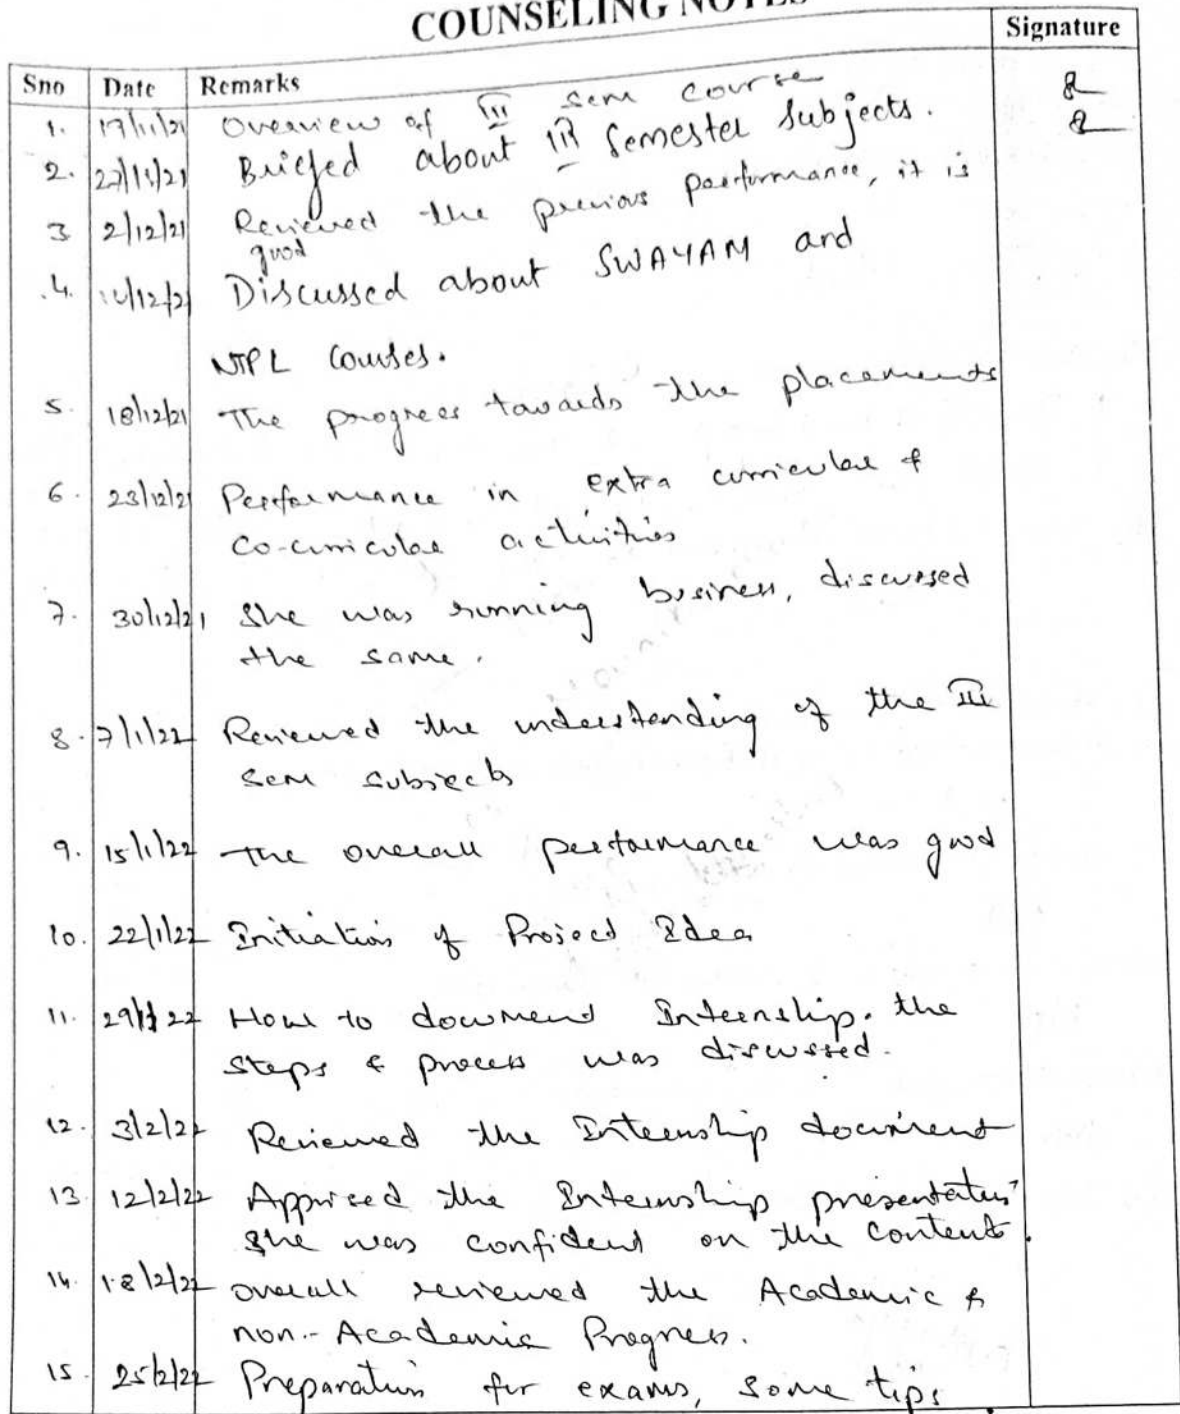 COUNSELING NOTES
Sno Date Remarks Signature
1. 17/11/21 Overview of III sem course
2. 22/11/21 Briefed about III Semester Subjects.
3 2/12/21 Reviewed the previous performance, it is
good
4. /12/21 Discussed about SWAYAM and
NTPL Courses.
5. 18/12/21 The progress towards the placements
6. 23/12/21 Performance in extra curricular &
Co-curricular activities
7. 30/12/21 She was running business, discussed
the same.
8. 7/1/22 Reviewed the understanding of the III
sem subjects
9. 15/1/22 The overall performance was good
10. 22/1/22 Initiation of Project Idea
11. 29/1/22 How to document Internship. the
steps & process was discussed.
12. 3/2/22 Reviewed the Internship document
13. 12/2/22 Apprised the Internship presentation
She was confident on the content.
14. 18/2/22 overall reviewed the Academic &
non-Academic Progress.
15. 25/2/22 Preparation for exams, some tips.